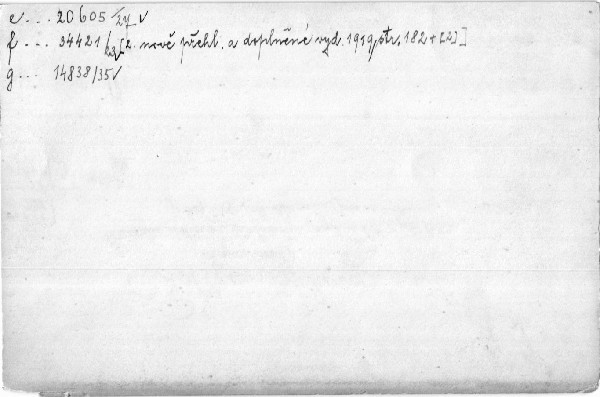 e... 20605/27 v
f... 34421/29 [2. nově přehl. a doplněné vyd. 1919, str. 182+22]]
g... 14838/35 v